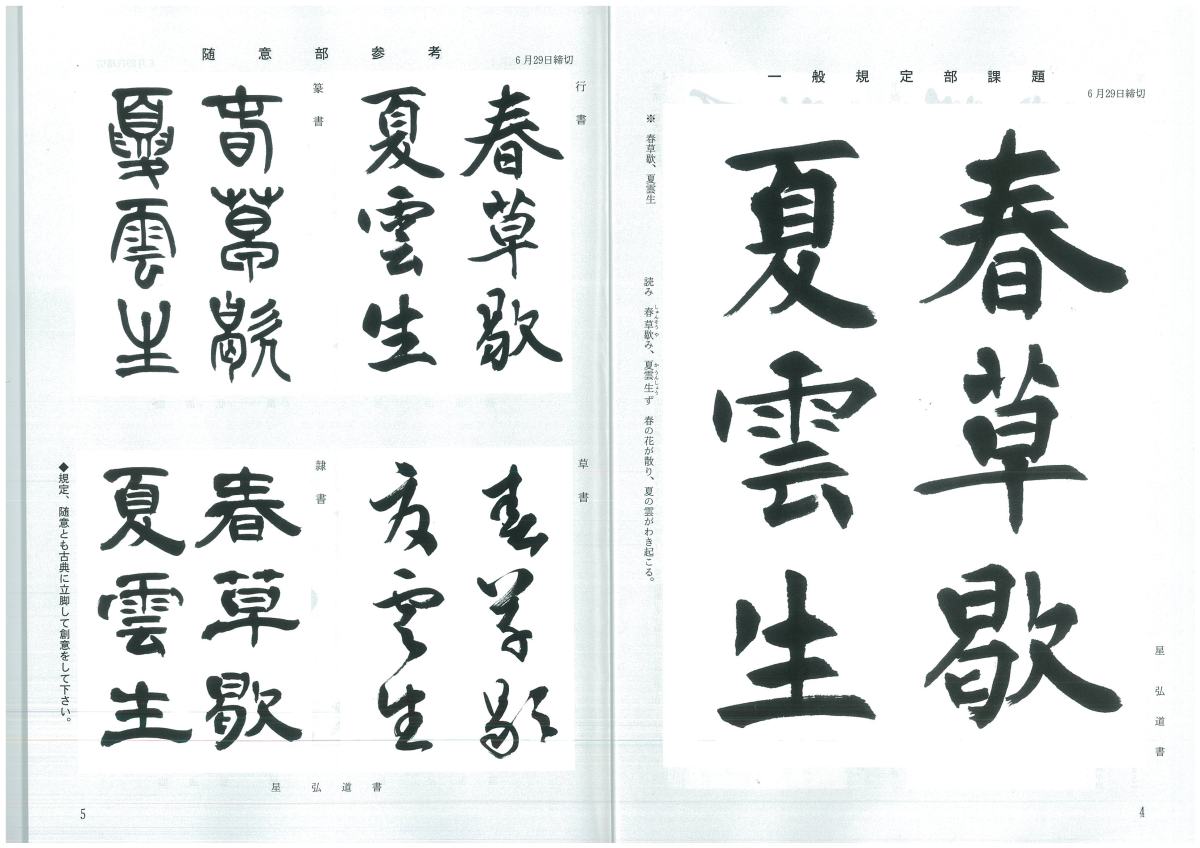 一般規定部課題
6月29日締切
春草歇
夏雲生
星弘道書
※ 春草歇、夏雲生
読み 春草歇み、夏雲生ず 春の花が散り、夏の雲がわき起こる。
しゅんそうや
かうんしょう
4
随意部参考
6月29日締切
行書
春草歇
夏雲生
篆書
春草歇
夏雲生
草書
春草歇
夏雲生
隷書
春草歇
夏雲生
◆規定、随意とも古典に立脚して創意をして下さい。
星弘道書
5